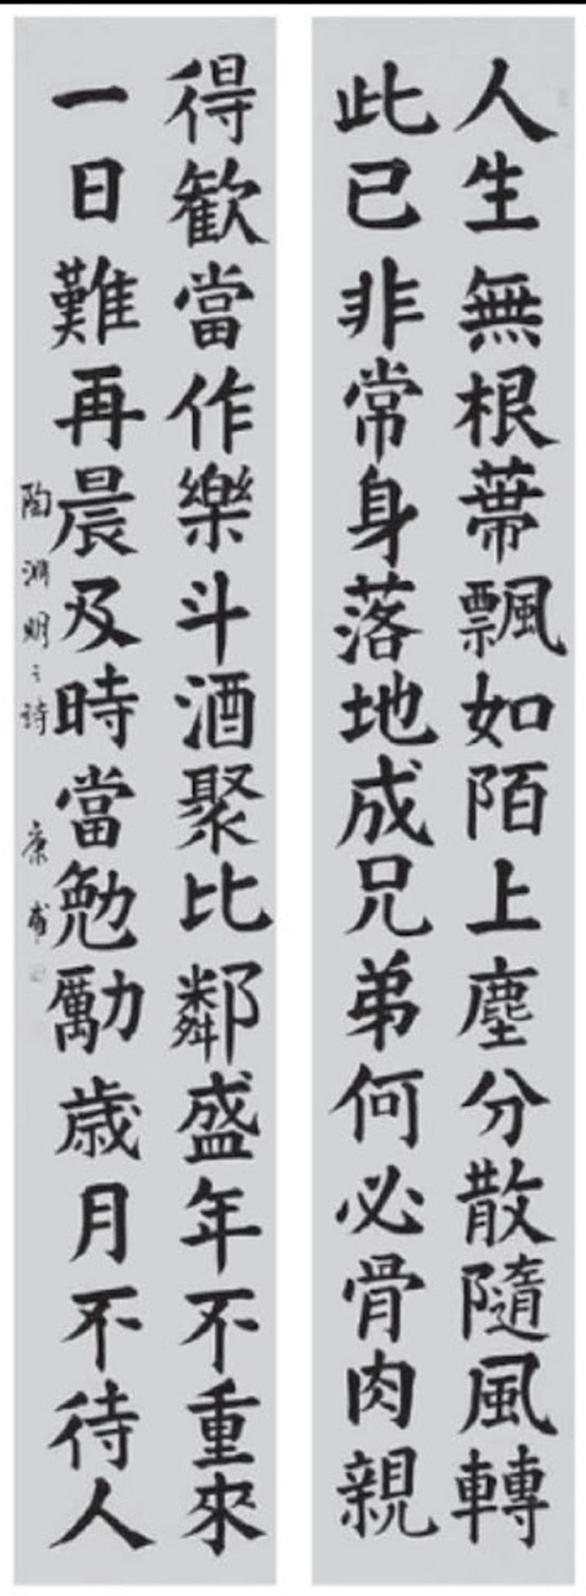 人生無根蔕飄如陌上塵分散隨風轉
此已非常身落地成兄弟何必骨肉親
得歓當作樂斗酒聚比鄰盛年不重來
一日難再晨及時當勉勵歳月不待人
陶淵明之詩 康甫